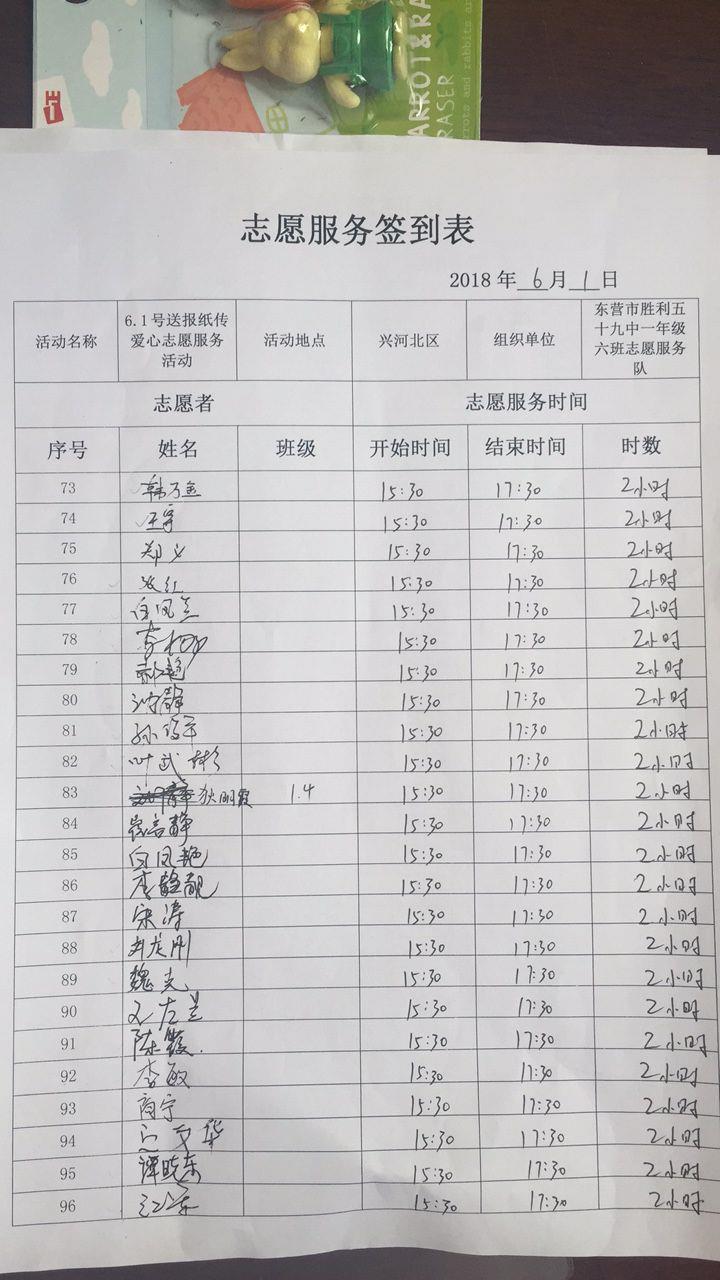 CARROT&RA
ERASER
carrots and rabbits ar
志愿服务签到表
2018 年 6 月 1 日
活动名称 6.1号送报纸传爱心志愿服务活动 活动地点 兴河北区 组织单位 东营市胜利五十九中一年级六班志愿服务队
志愿者 志愿服务时间
序号 姓名 班级 开始时间 结束时间 时数
73 韩乃鱼 15:30 17:30 2小时
74 王宇 15:30 17:30 2小时
75 郑义 15:30 17:30 2小时
76 15:30 17:30 2小时
77 白凤兰 15:30 17:30 2小时
78 15:30 17:30 2小时
79 15:30 17:30 2小时
80 静 15:30 17:30 2小时
81 孙 15:30 17:30 2小时
82 叶武彬 15:30 17:30 2小时
83 狄丽霞 1.4 15:30 17:30 2小时
84 静 15:30 17:30 2小时
85 白凤艳 15:30 17:30 2小时
86 李静靓 15:30 17:30 2小时
87 宋涛 15:30 17:30 2小时
88 刘龙刚 15:30 17:30 2小时
89 魏光 15:30 17:30 2小时
90 15:30 17:30 2小时
91 陈霞 15:30 17:30 2小时
92 李敏 15:30 17:30 2小时
93 商宁 15:30 17:30 2小时
94 文华 15:30 17:30 2小时
95 谭晓东 15:30 17:30 2小时
96 15:30 17:30 2小时